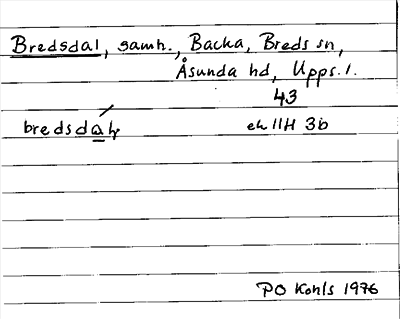 Bredsdal, samh., Backa, Breds sn,
Åsunda hd, Upps. l.
43
bredsda̲ḷ
ek 11H 3b
PO Kohls 1976